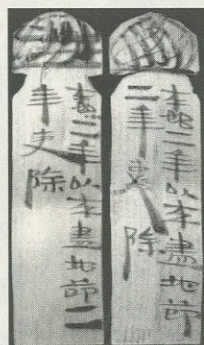 本始二年以來盡地節
二年吏除
本始二年以來盡地節二
年吏除